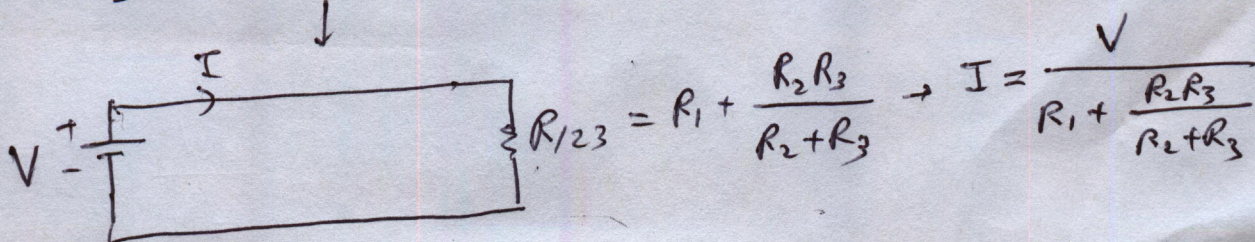 I
V + -
R₁₂₃ = R₁ + \frac{R₂R₃}{R₂+R₃} → I = \frac{V}{R₁ + \frac{R₂R₃}{R₂+R₃}}